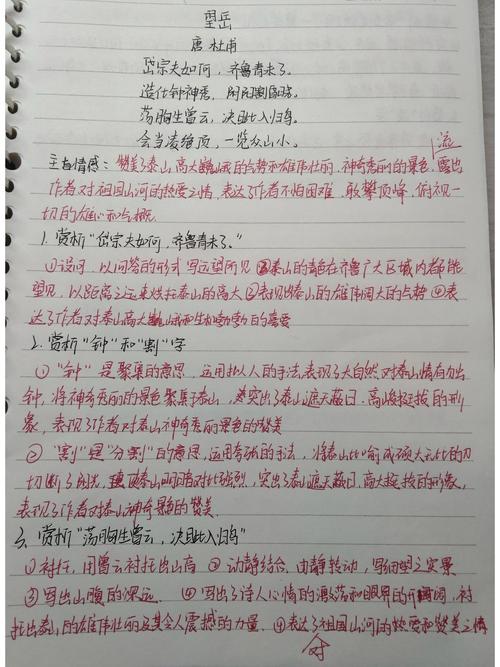 望岳
唐 杜甫
岱宗夫如何,齐鲁青未了。
造化钟神秀,阴阳割昏晓。
荡胸生曾云,决眦入归鸟。
会当凌绝顶,一览众山小。
流
主旨情感:赞美了泰山高大巍峨的气势和雄伟壮丽,神奇秀丽的景色,露出
作者对祖国山河的热爱之情,表达了作者不怕困难,敢攀顶峰,俯视一
切的雄心和气概
1. 赏析"岱宗夫如何,齐鲁青未了。"
①设问,以问答的形式写远望所见②泰山的青色在齐鲁广大区域内都能
望见,以距离之远来烘托泰山的高大③表现出泰山的雄伟阔大的气势④表
达了作者对泰山高大巍峨和生机勃勃的喜爱
2. 赏析"钟"和"割"字
①"钟"是聚集的意思,运用拟人的手法,表现了大自然对泰山情有独
钟,将神奇秀丽的景色聚集于泰山,突出了泰山遮天蔽日,高峻挺拔的形
象,表现了作者对泰山神奇秀丽景色的赞美
②"割"是"分割"的意思,运用夸张的手法,将泰山比喻成硕大无比的刀
切断了阳光,泰山明暗对比强烈,突出了泰山遮天蔽日,高大挺拔的形象,
表现了作者对泰山神奇景色的赞美
3. 赏析"荡胸生曾云,决眦入归鸟"
①衬托,用曾云衬托出山高 ②动静结合,由静转动,写细望之实景
③写出山腹的深远 ④写出了诗人心情的激荡和眼界的开阔,衬
托出泰山的雄伟壮丽及其令人震撼的力量 ④表达了祖国山河的热爱和赞美之情
对